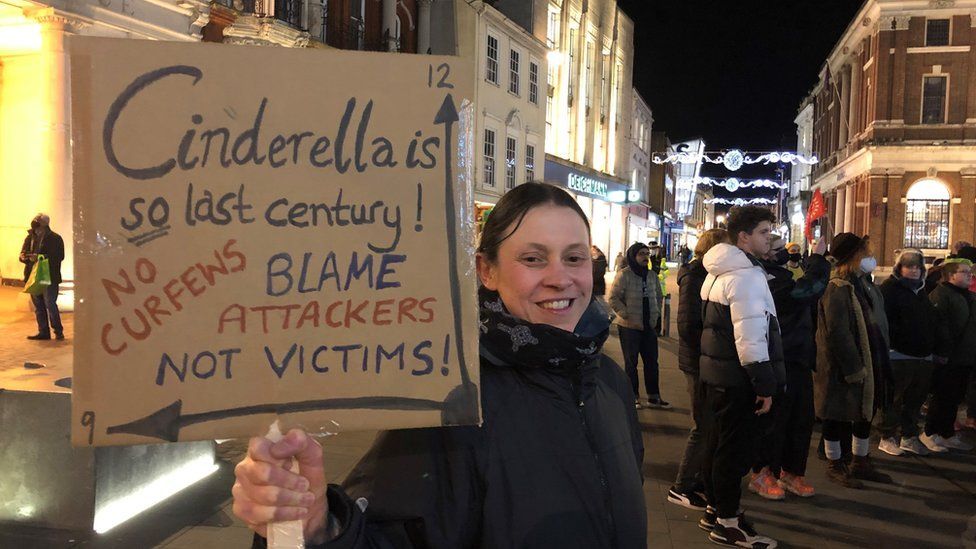 12
Cinderella is
so last century!
NO
CURFEWS
BLAME
ATTACKERS
NOT VICTIMS!
9
DEICHMANN